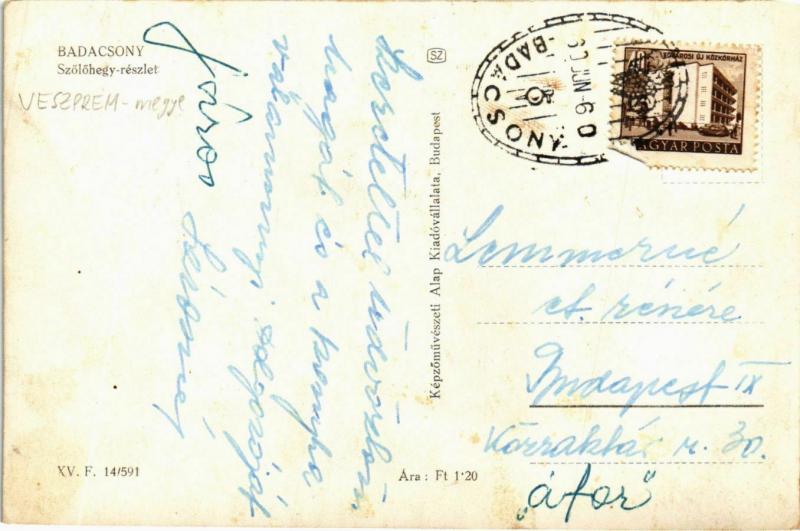 BADACSONY
Szőlőhegy-részlet
VESZPRÉM-megye
Szeretettel üdvözlöm
magát és a konyha
valamennyi dolgozóját
SZ
Képzőművészeti Alap Kiadóvállalata, Budapest
BADACS
60 JUN -6 0
EGRÁROSI ÚJ KÓRHÁZ
MAGYAR POSTA
Lemmerné
et. részére
Budapest IX
Közraktár u. 30.
"áfor"
XV. F. 14/591
Ára : Ft 1'20